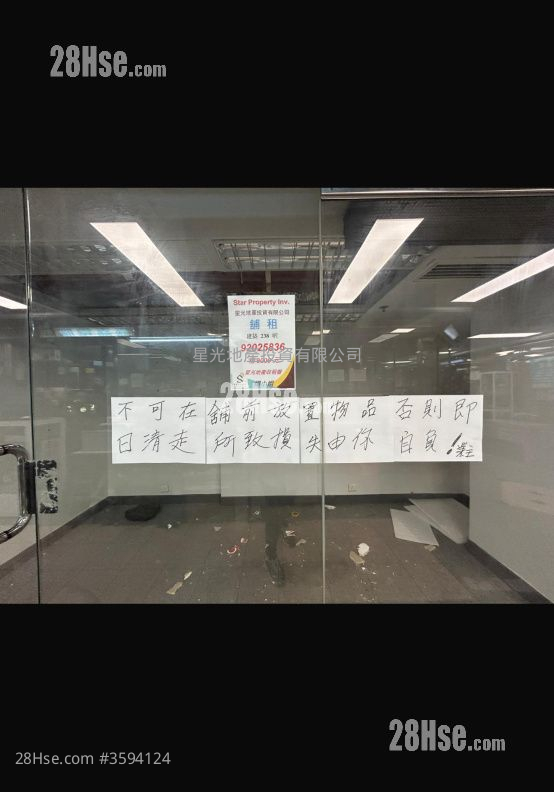 28Hse.com
Star Property Inv.
星光地產投資有限公司
舖 租
建築 238 呎
92025836
星光地產投資有限公司
28Hse
不可在舖前放置物品否則即
日清走所致損失由你自負!業主
28Hse.com
28Hse.com #3594124